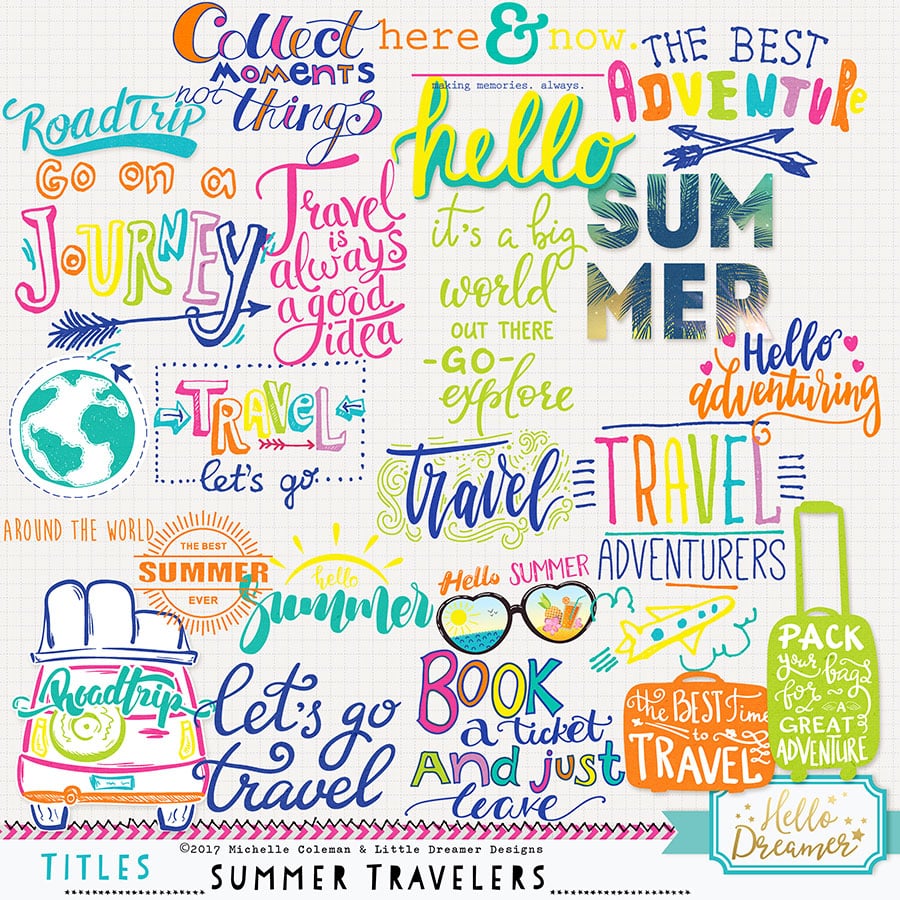 Collect
MOMENTS
not
things
here & now.
making memories. always.
THE BEST
ADVENTURe
RoadTrip
hello
GO ON a
JOURNEY
Travel
is
always
a good
idea
it's a big
world
OUT THERE
-GO-
explore
SUM
MER
Hello
adventuring
TRAVEL
let's go
travel
TRAVEL
ADVENTURERS
AROUND THE WORLD
THE BEST
SUMMER
EVER
hello
Summer
Hello SUMMER
Roadtrip
let's go
travel
BOOK
a ticket
And just
leave
the BEST Time
to
TRAVEL
PACK
your bags
for
A
GREAT
ADVENTURE
Hello
Dreamer
©2017 Michelle Coleman & Little Dreamer Designs
TITLES
SUMMER TRAVELERS